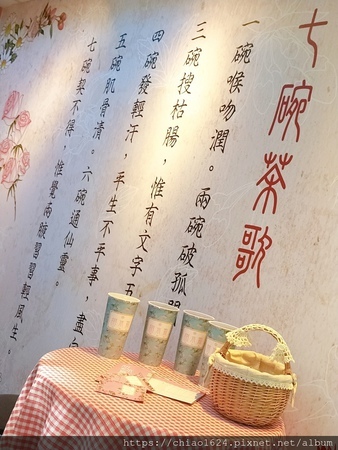 七碗茶歌
一碗喉吻潤。兩碗破孤悶
三碗搜枯腸，惟有文字五
四碗發輕汗，平生不平事，盡向
五碗肌骨清。六碗通仙靈。
七碗喫不得，惟覺兩腋習習輕風生。
https://chiao1624.pixnet.net/album